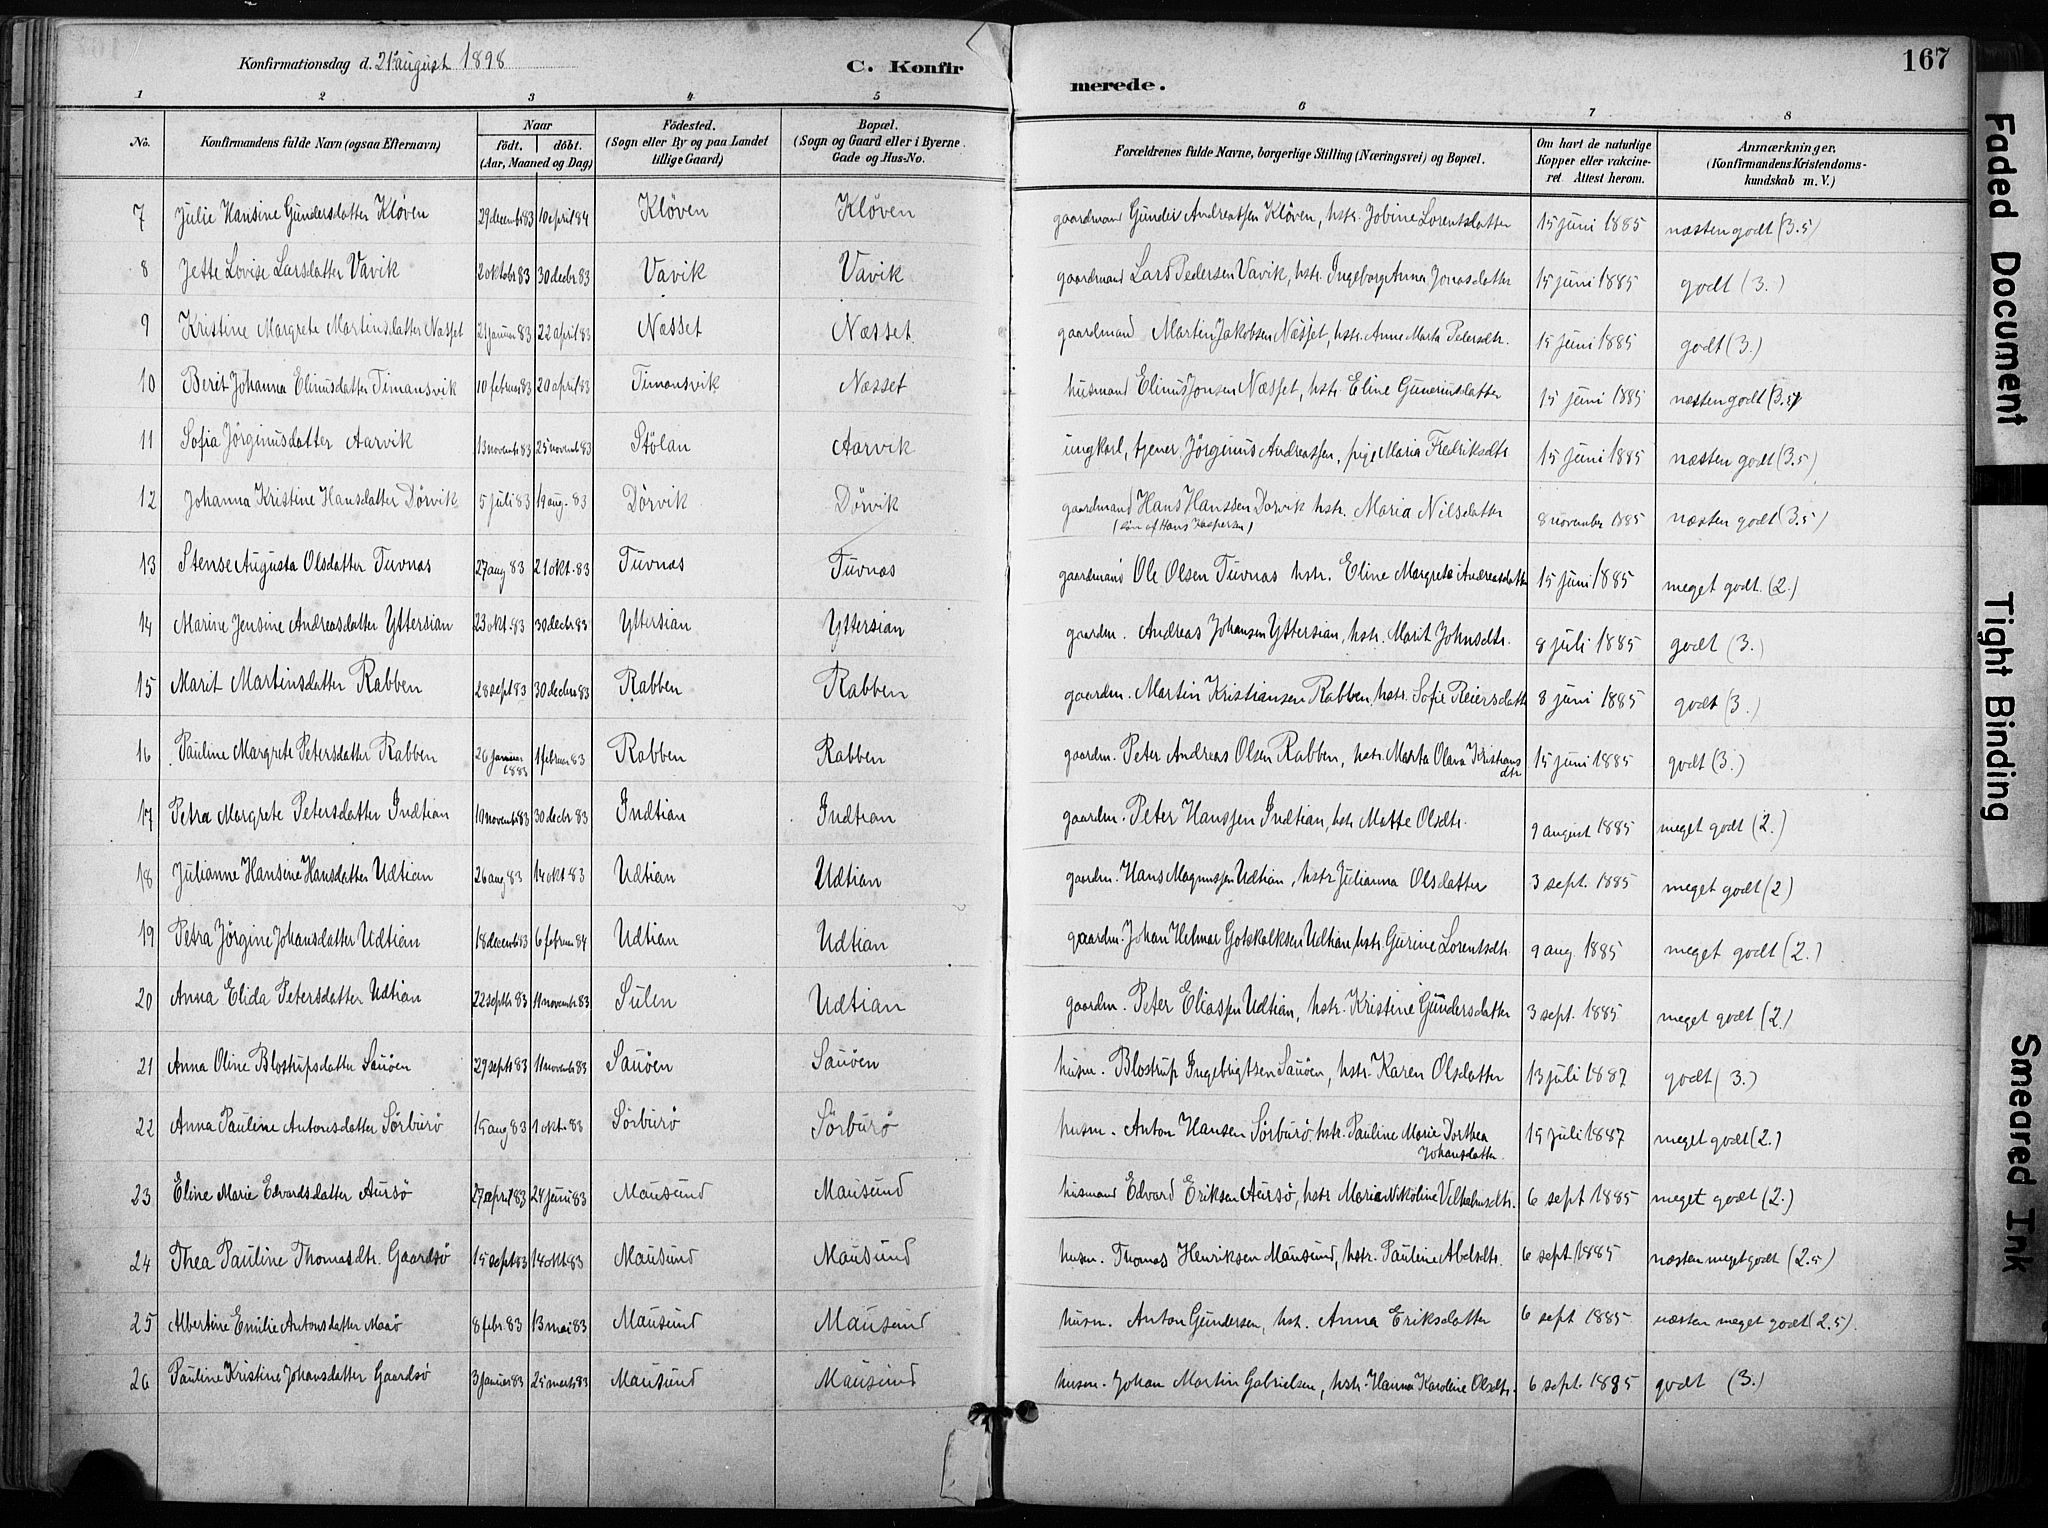 Konfirmationsdag d. 21 august 1898
C. Konfir
merede.
167
1 2 3 4 5 6 7 8
No.
Konfirmandens fulde Navn (ogsaa Efternavn)
Naar
födt. döbt.
(Aar, Maaned og Dag)
Födested.
(Sogn eller By og paa Landet
tillige Gaard)
Bopæl.
(Sogn og Gaard eller i Byerne
Gade og Hus-No.
Forældrenes fulde Navne, borgerlige Stilling (Næringsvei) og Bopæl.
Om havt de naturlige
Kopper eller vakcine-
ret. Attest herom.
Anmærkninger,
(Konfirmandens Kristendoms-
kundskab m. V.)
7 Julie Hansine Gundersdatter Kløven 29 decemb 83 10 april 84 Kløven Kløven gaardmand Gunder Andreassen Kløven, hstr. Jobine Lorentsdatter 15 juni 1885 næsten godt (3.5)
8 Jette Lovise Larsdatter Vavik 2 oktobr 83 30 decbr 83 Vavik Vavik gaardmand Lars Pedersen Vavik, hstr. Ingeborg Anna Jonasdatter 15 juni 1885 godt (3.)
9 Kristine Margrete Martinsdatter Næsset 21 januar 83 22 april 83 Næsset Næsset gaardmand Martin Jakobsen Næsset, hstr. Anne Marta Pedersdtr. 15 juni 1885 godt (3.)
10 Berit Johanna Elinusdatter Timansvik 10 februar 83 20 april 83 Timansvik Næsset husmand Elinus Jonsen Næsset, hstr Eline Guneriusdatter 15 juni 1885 næsten godt (3.5)
11 Sofia Jörginusdatter Aarvik 13 novemb 83 25 novemb 83 Stölan Aarvik ungkarl, tjener Jörginus Andreassen, pige Maria Fredriksdtr 15 juni 1885 næsten godt (3.5)
12 Johanna Kristine Hansdatter Dörvik 5 juli 83 19 aug. 83 Dörvik Dörvik gaardmand Hans Hanssen Dorvik hstr. Maria Nilsdatter 8 november 1885 næsten godt (3.5)
(sön af Hans Kaspersen)
13 Stense Augusta Olsdatter Tuvnas 27 aug 83 21 okt. 83 Tuvnas Tuvnas gaardmand Ole Olsen Tuvnas hstr. Eline Margrete Andreasdatter 15 juni 1885 meget godt. (2.)
14 Marine Jensine Andreasdatter Yttersian 23 okt. 83 30 decbr 83 Yttersian Yttersian gaardm. Andreas Johansen Yttersian, hstr. Marit Johnsdtr. 8 juli 1885 godt (3.)
15 Marit Martinsdatter Rabben 28 sept 83 30 decbr 83 Rabben Rabben gaardm. Martin Kristiansen Rabben, hstr. Sofie Reiersdatter 8 juni 1885 godt (3.)
16 Pauline Margrete Petersdatter Rabben 26 januar 1883 1 februar 83 Rabben Rabben gaardm. Peter Andreas Olsen Rabben, hstr. Marta Olava Kristians 15 juni 1885 godt (3.)
dtr
17 Petra Margrete Petersdatter Indtian 19 novemb 83 30 decbr 83 Indtian Indtian gaardm. Peter Hanssen Indtian, hstr Mette Olsdtr. 9 august 1885 meget godt (2.)
18 Julianne Hansine Hansdatter Udtian 26 aug 83 14 okt 83 Udtian Udtian gaardm. Hans Magnussen Udtian, hstr Julianna Olsdatter 3 sept. 1885 meget godt (2)
19 Petra Jörgine Johansdatter Udtian 18 decemb 83 6 februar 84 Udtian Udtian gaardm. Johan Helmer Gotskalksen Udtian, hstr. Gurine Lorentsdtr. 9 aug 1885 meget godt (2.)
20 Anna Elida Petersdatter Udtian 22 septbr 83 11 novembr 83 Sulen Udtian gaardm. Peter Eliassen Udtian, hstr. Kristine Gundersdatter 3 sept. 1885 meget godt (2.)
21 Anna Oline Blostrupsdatter Sauöen 29 septb 83 11 novembr 83 Sauöen Sauöen husm. Blostrup Ingebrigtsen Sauöen, hstr. Karen Olsdatter 13 juli 1887 godt (3.)
22 Anna Pauline Antonsdatter Sörburö 15 aug 83 1 okt. 83 Sörburö Sörburö husm. Anton Hansen Sörburö, hstr. Pauline Marie Dorthea 15 juli 1887 meget godt (2.)
Johansdatter
23 Eline Marie Edvardsdatter Aursö 27 april 83 24 juni 83 Mausund Mausund husmand Edvard Eriksen Aursö, hstr Maria Nikoline Vilhelmsdtr. 6 sept 1885 meget godt (2.)
24 Thea Pauline Thomasdtr. Gaardsö 15 sept 83 14 okt 83 Mausund Mausund husm. Thomas Henriksen Mausund, hstr. Pauline Abelsdtr. 6 sept. 1885 næsten meget godt (2.5)
25 Albertine Emilie Antonsdatter Maaö 8 febr. 83 13 mai 83 Mausund Mausund husm. Anton Gundersen, hst. Anna Eriksdatter 6 sept 1885 næsten meget godt (2.5).
26 Pauline Kristine Johansdatter Gaardsö 3 januar 83 25 marts 83 Mausund Mausund husm. Johan Martin Gabrielsen, hstr. Hanna Karoline Olsdtr. 6 sept. 1885 godt (3.)
Faded Document
Tight Binding
Smeared Ink